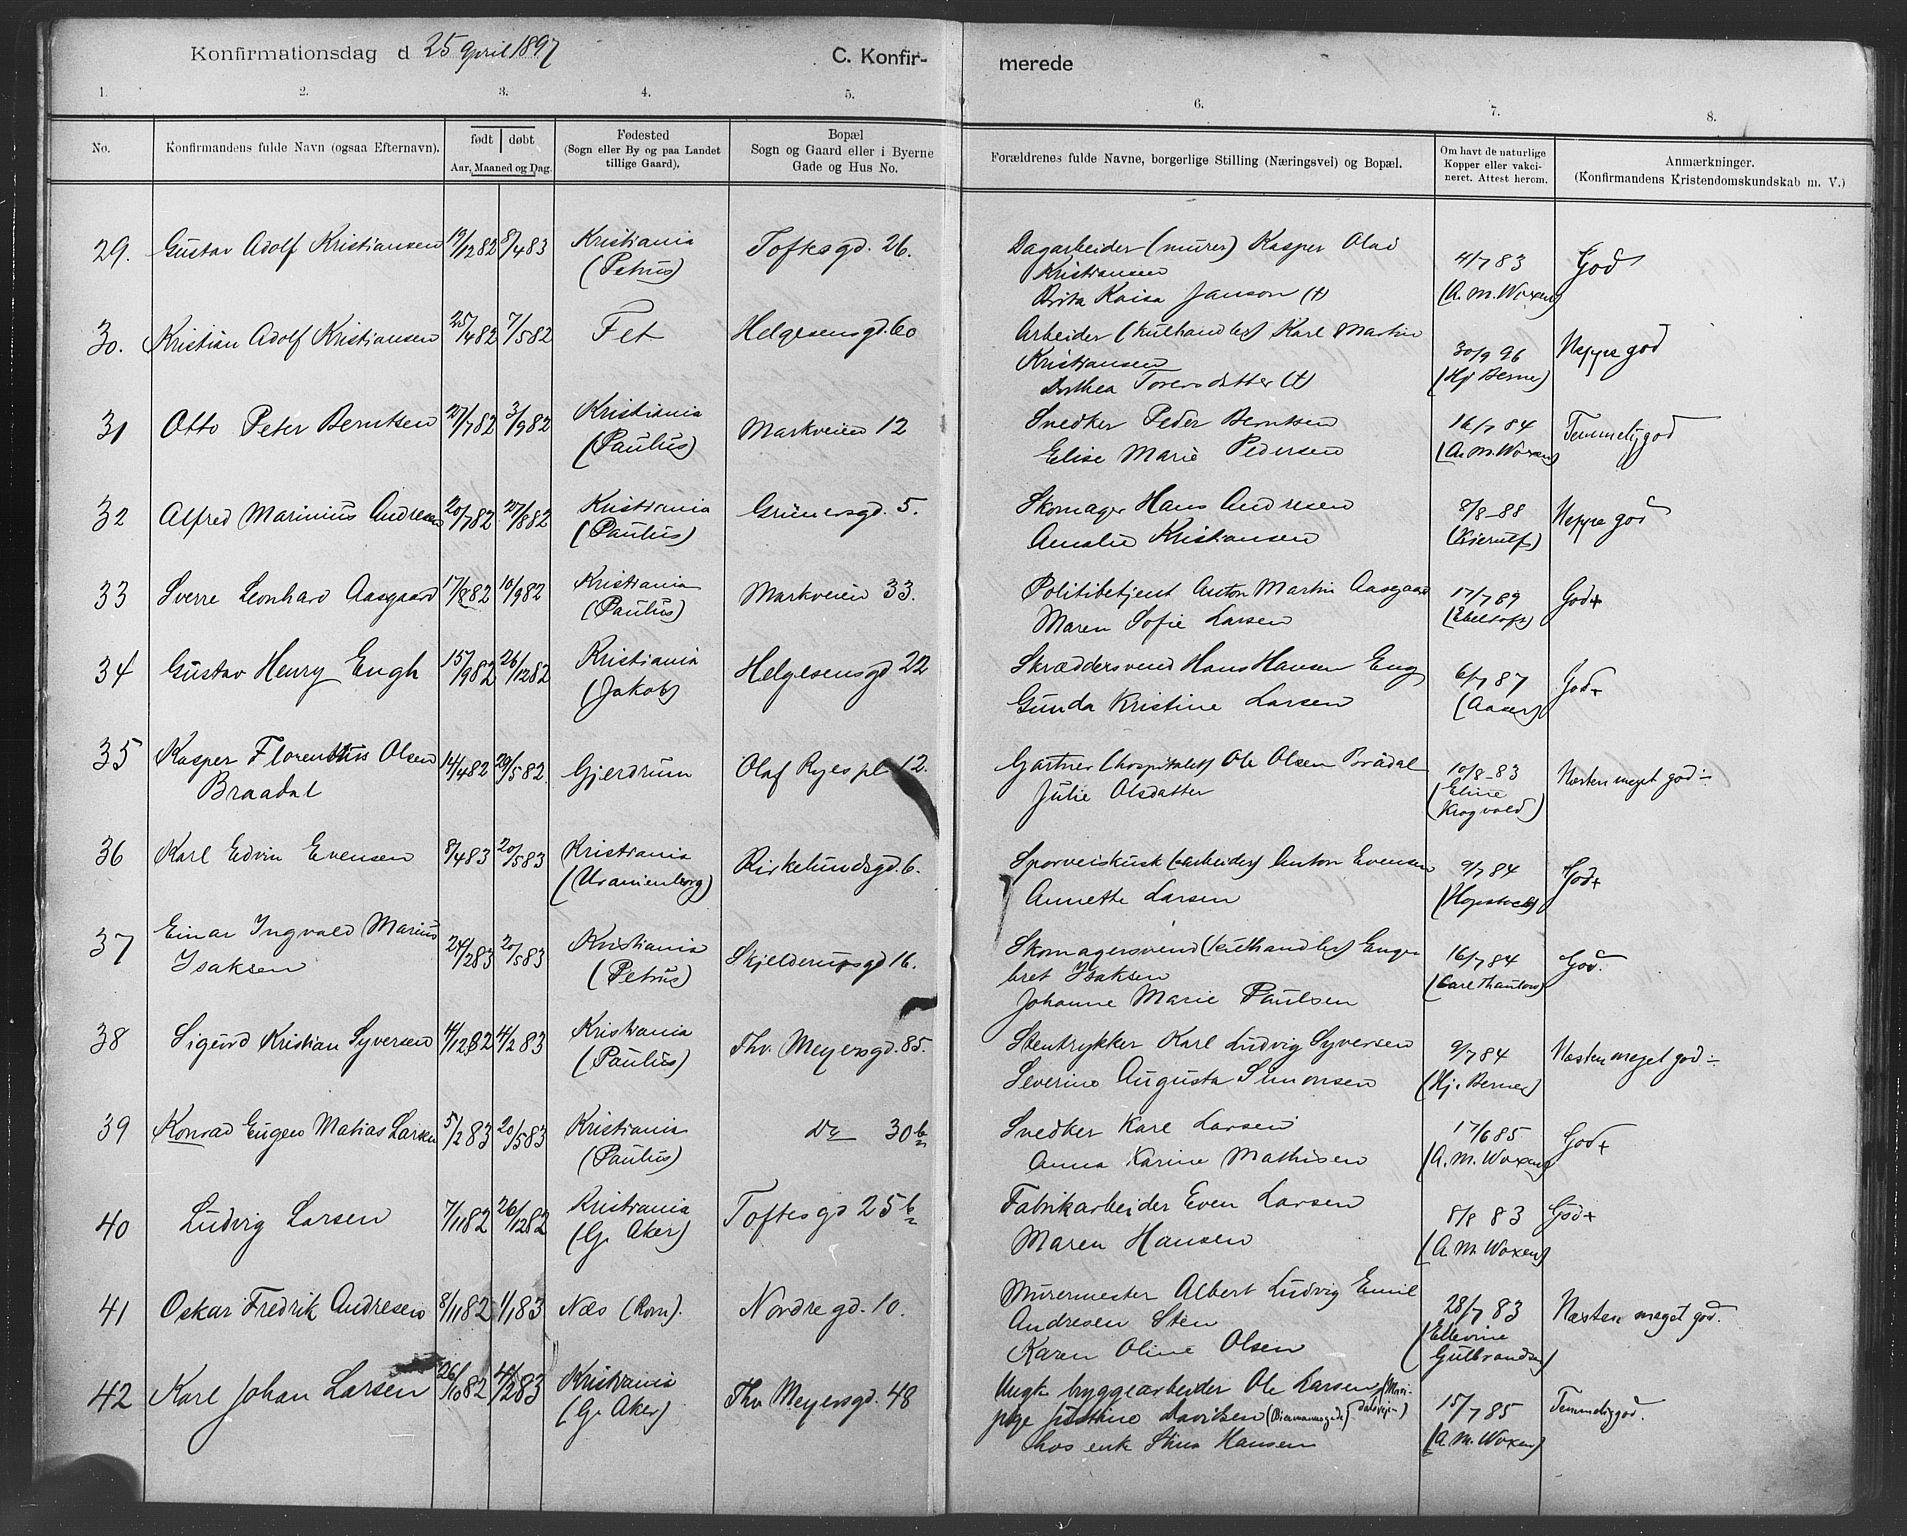 Konfirmationsdag d 25 April 1897
C. Konfir-
merede
1. 2. 3. 4. 5. 6. 7. 8.
No.
Konfirmandens fulde Navn (ogsaa Efternavn).
født døbt
Aar, Maaned og Dag.
Fødested
(Sogn eller By og paa Landet
tillige Gaard).
Bopæl
Sogn og Gaard eller i Byerne
Gade og Hus No.
Forældrenes fulde Navne, borgerlige Stilling (Næringsvei) og Bopæl.
Om havt de naturlige
Kopper eller vakci-
neret. Attest herom.
Anmærkninger.
(Konfirmandens Kristendomskundskab m. V.)
29. Gustav Adolf Kristiansen 19/12 82 8/4 83 Kristiania Toftesgd. 26. Dagarbeider (murer) Kasper Olai 4/7 83 God
(Petrus) Kristiansen (A. M. Woxen)
Brita Kaisa Janson (†)
30. Kristian Adolf Kristiansen 25/4 82 7/5 82 Fet Helgesensgd. 60 Arbeider (kulhandler) Karl Martin 30/9 96 Neppe god
Kristiansen (Hj Berner)
Dorthea Toresdatter (†)
31 Otto Peter Berntsen 27/7 82 3/9 82 Kristiania Markveien 12 Snedker Peder Berntsen 16/7 84 Temmelig god
(Paulus) Elise Marie Pedersen (A. M. Woxen)
32 Alfred Marinius Andresen 20/7 82 27/8 82 Kristiania Grünersgd. 5. Skomager Hans Andresen 8/8-88 Neppe god
(Paulus) Amalie Kristiansen (Kierulf)
33 Sverre Leonhard Aasgaard 17/8 82 10/9 82 Kristiania Markveien 33. Politibetjent Anton Martin Aasgaard 17/7 89 God+
(Paulus) Maren Sofie Larsen (Ebeltoft)
34 Gustav Henry Engh 15/9 82 26/12 82 Kristiania Helgesensgd 22 Skræddersvend Hans Hansen Eng 6/7 87 God+
(Jakob) Gunda Kristine Larsen (Aaser)
35 Kasper Florentius Olsen 14/4 82 29/5 82. Gjerdrum Olaf Ryes pl 12. Gartner (hospitalet) Ole Olsen Brådal 10/8-83 Næsten meget god÷
Braadal Julie Olsdatter (Eline
Krogvold)
36 Karl Edvin Evensen 8/4 83 20/5 83 Kristiania Birkelundsgd. 6. Sporveiskusk (arbeider) Anton Evensen 9/7 84 God+
(Uranienborg) Annette Larsen (Hopstock)
37 Einar Ingvald Marius 24/2 83 20/5 83 Kristiania Skjelderupsgd 16. Skomagersvend (kulhandler) Enge- 16/7 84 God.
Isaksen (Petrus) bret Isaksen (Carl Thaulow)
Johanne Marie Paulsen
38 Sigurd Kristian Syversen 4/12 82 4/2 83 Kristiania Thv. Meyersgd. 85. Stentrykker Karl Ludvig Syversen 9/7 84 Næsten meget god÷
(Paulus) Severine Augusta Simonsen (Hj. Berner)
39 Konrad Eugen Matias Larsen 5/2 83 20/5 83 Kristiania do 30 b Snedker Karl Larsen 17/6 85 God+
(Paulus) Anna Karine Mathisen (A. M. Woxen)
40 Ludvig Larsen 7/11 82 26/12 82 Kristiania Toftesgd 25 b Fabrikarbeider Even Larsen 8/8 83 God+
(G. Aker) Maren Hansen (A. M. Woxen)
41 Oskar Fredrik Andresen 8/11 82 1/1 83 Næs (Rom). Nordregd. 10. Murermester Albert Ludvig Emil 28/7 83 Næsten meget god.
Andresen Sten (Ellevine
Karen Oline Olsen Gulbrandsen)
42 Karl Johan Larsen 26/10 82 4/2 83 Kristiania Thv Meyersgd. 48 Ungk. bryggearbeider Ole Larsen 15/7 85 Temmelig god.
(G. Aker) pige Justine Davidsen (A. M. Woxen)
hos enk Stina Hansen